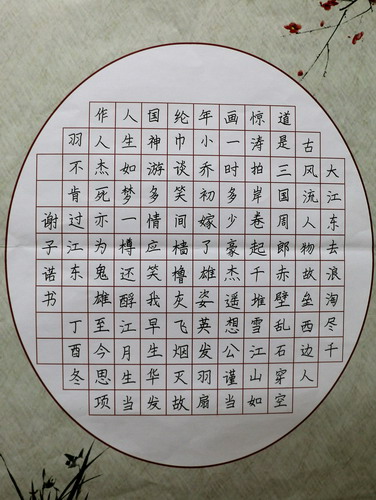 大江东去浪淘尽千
古风流人物故垒西边人
道是三国周郎赤壁乱石穿空
惊涛拍岸卷起千堆雪江山如
画一时多少豪杰遥想公谨当
年小乔初嫁了雄姿英发羽扇
纶巾谈笑间樯橹灰飞烟灭故
国神游多情应笑我早生华发
人生如梦一樽还酹江月生当
作人杰死亦为鬼雄至今思项
羽不肯过江东 丁酉冬
谢子诺书